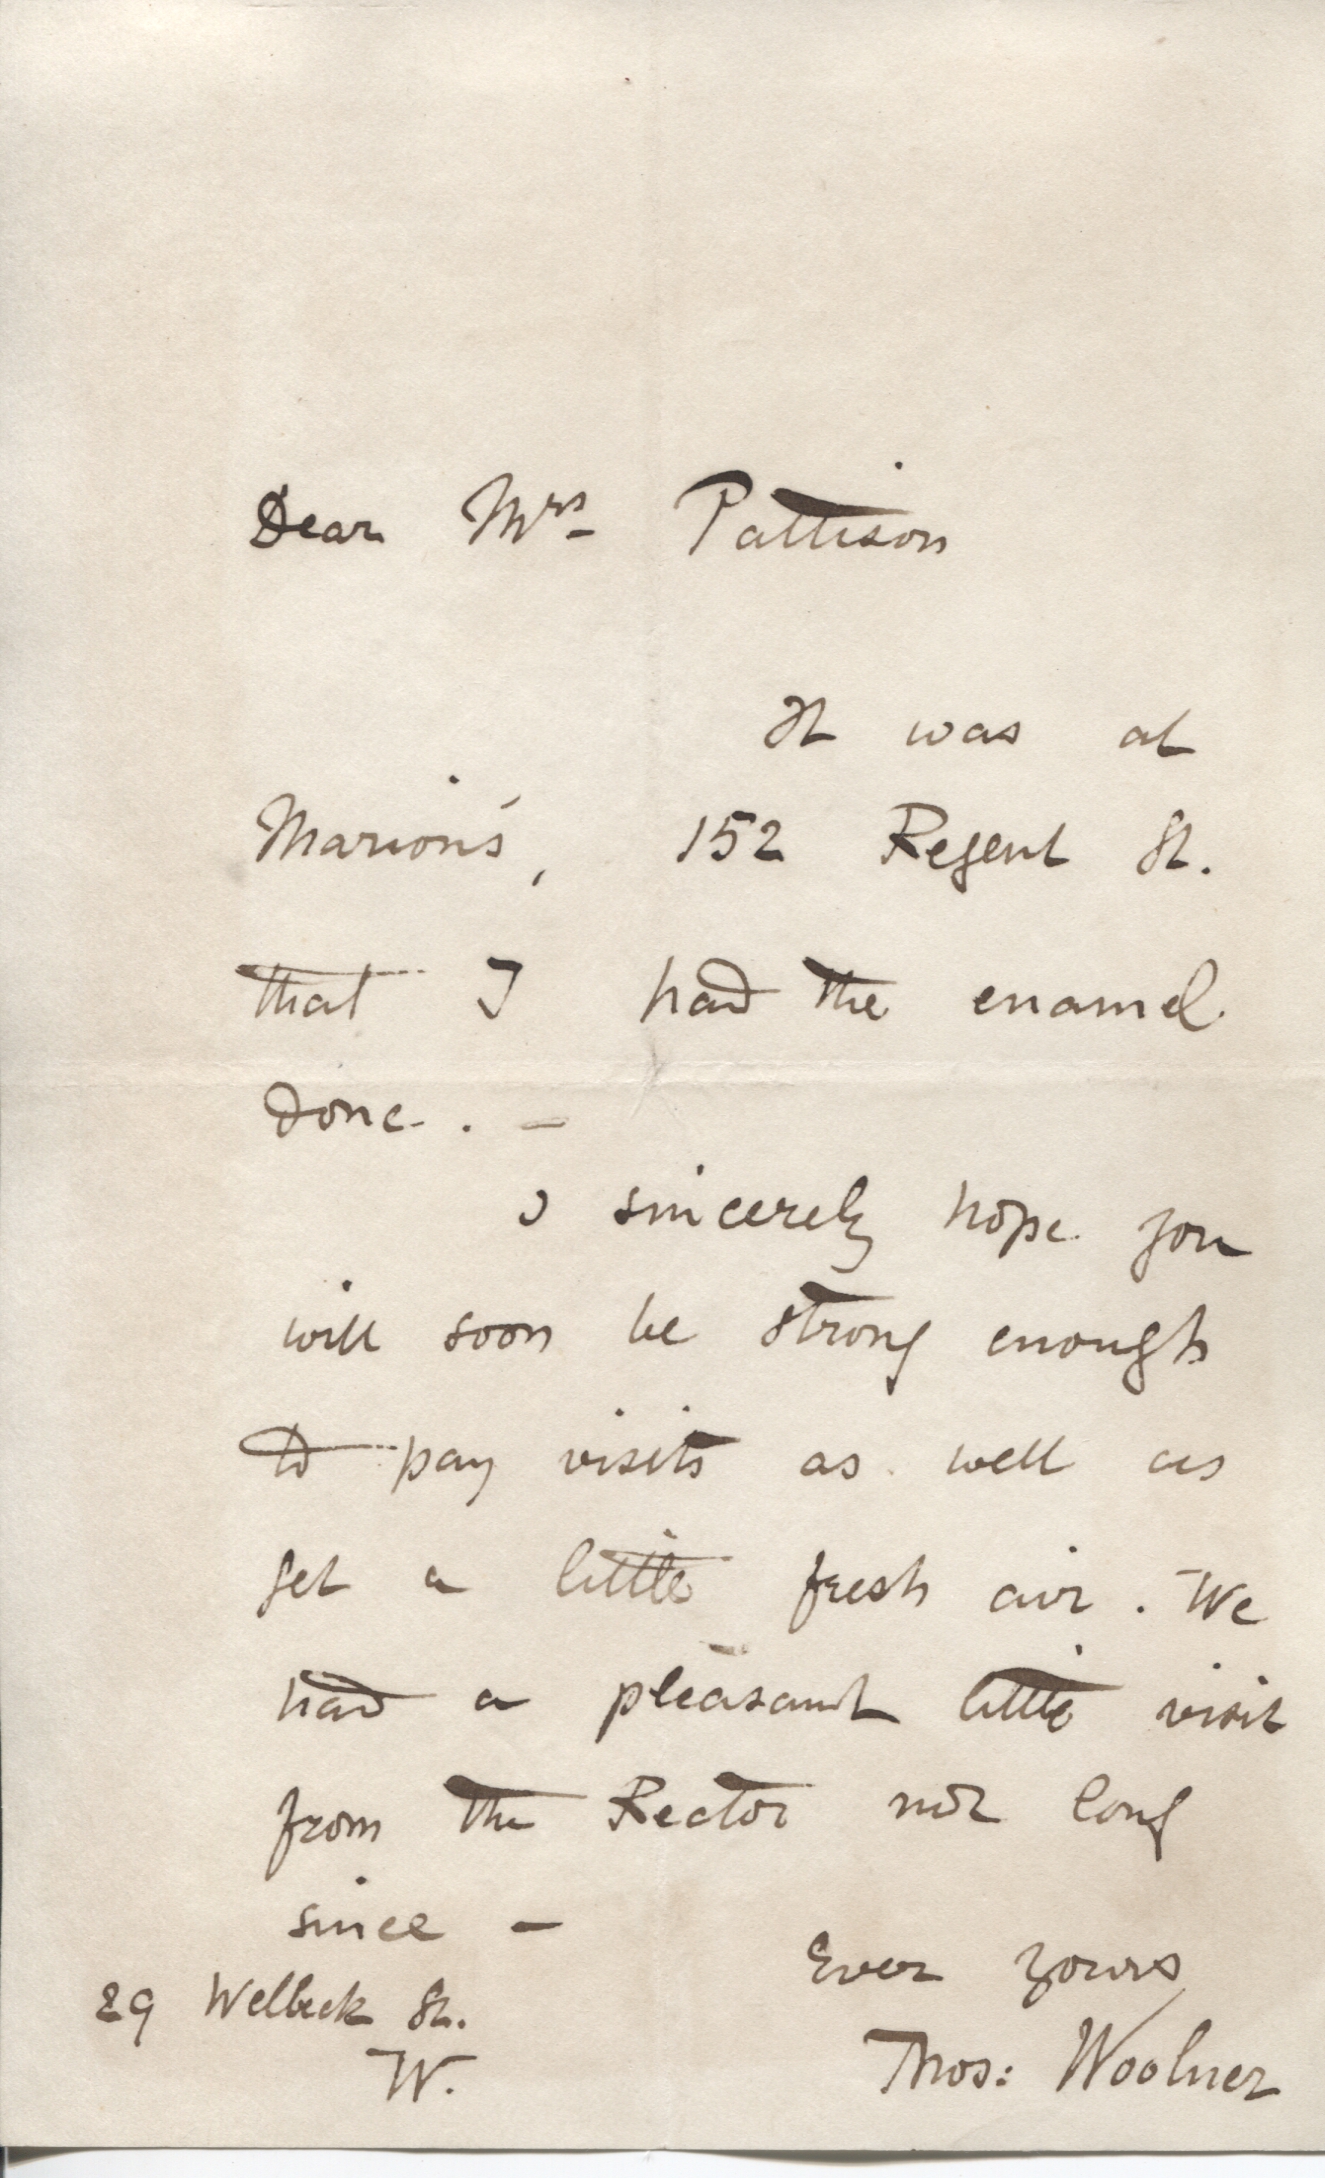 Dear Mrs Pattison
It was at
Marion's, 152 Regent St.
that I had the enamel
done. —
I sincerely hope you
will soon be strong enough
to pay visits as well as
get a little fresh air. We
had a pleasant little visit
from the Rector not long
since —
Ever yours
29 Welbeck St.
W.
Thos: Woolner